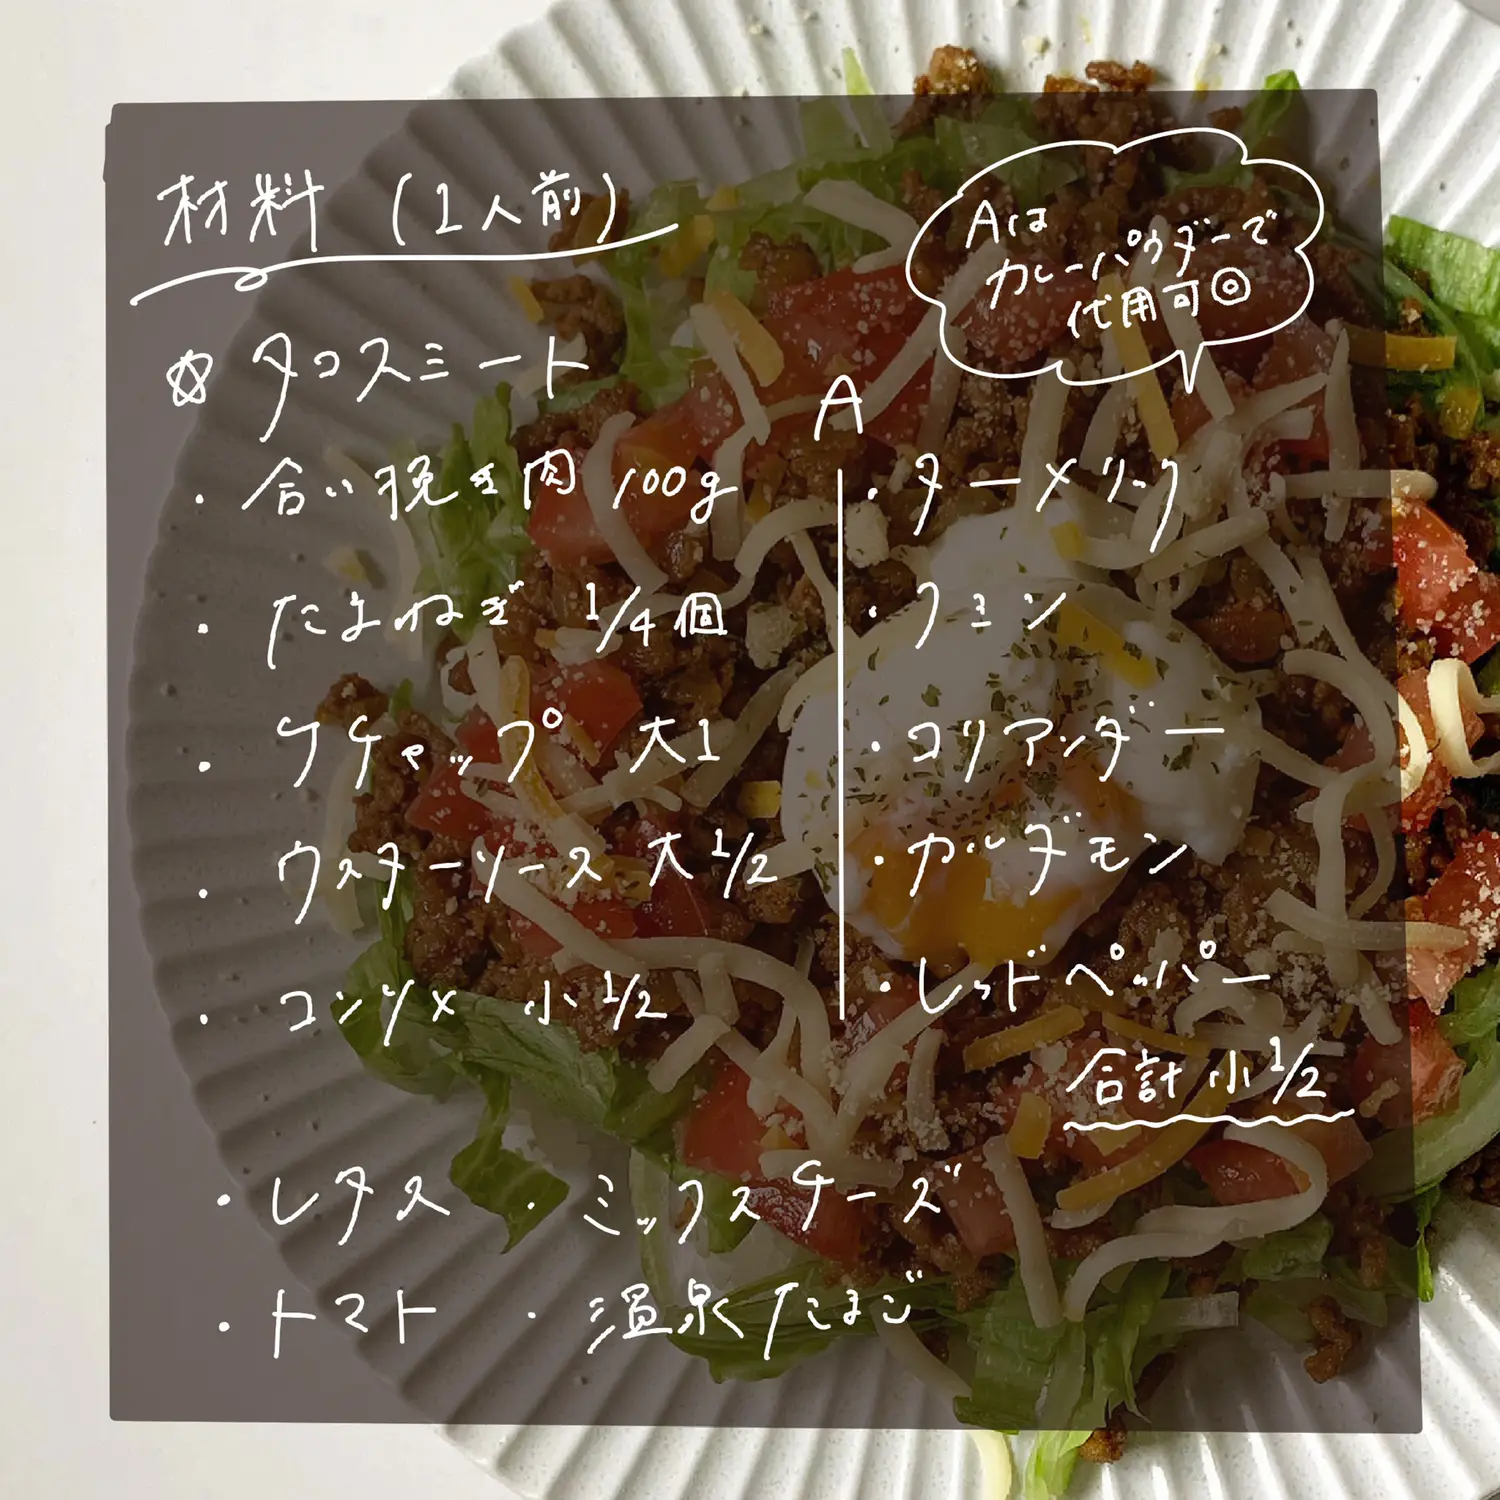 材料 (1人前)
Aは
カレーパウダーで
代用可◎
☆ タコスミート
・合い挽き肉 100g
・たまねぎ 1/4個
・ケチャップ 大1
・ウスターソース 大1/2
・コンソメ 小1/2
A
・ターメリック
・クミン
・コリアンダー
・カルダモン
・レッドペッパー
合計 小1/2
・レタス ・ミックスチーズ
・トマト ・温泉たまご